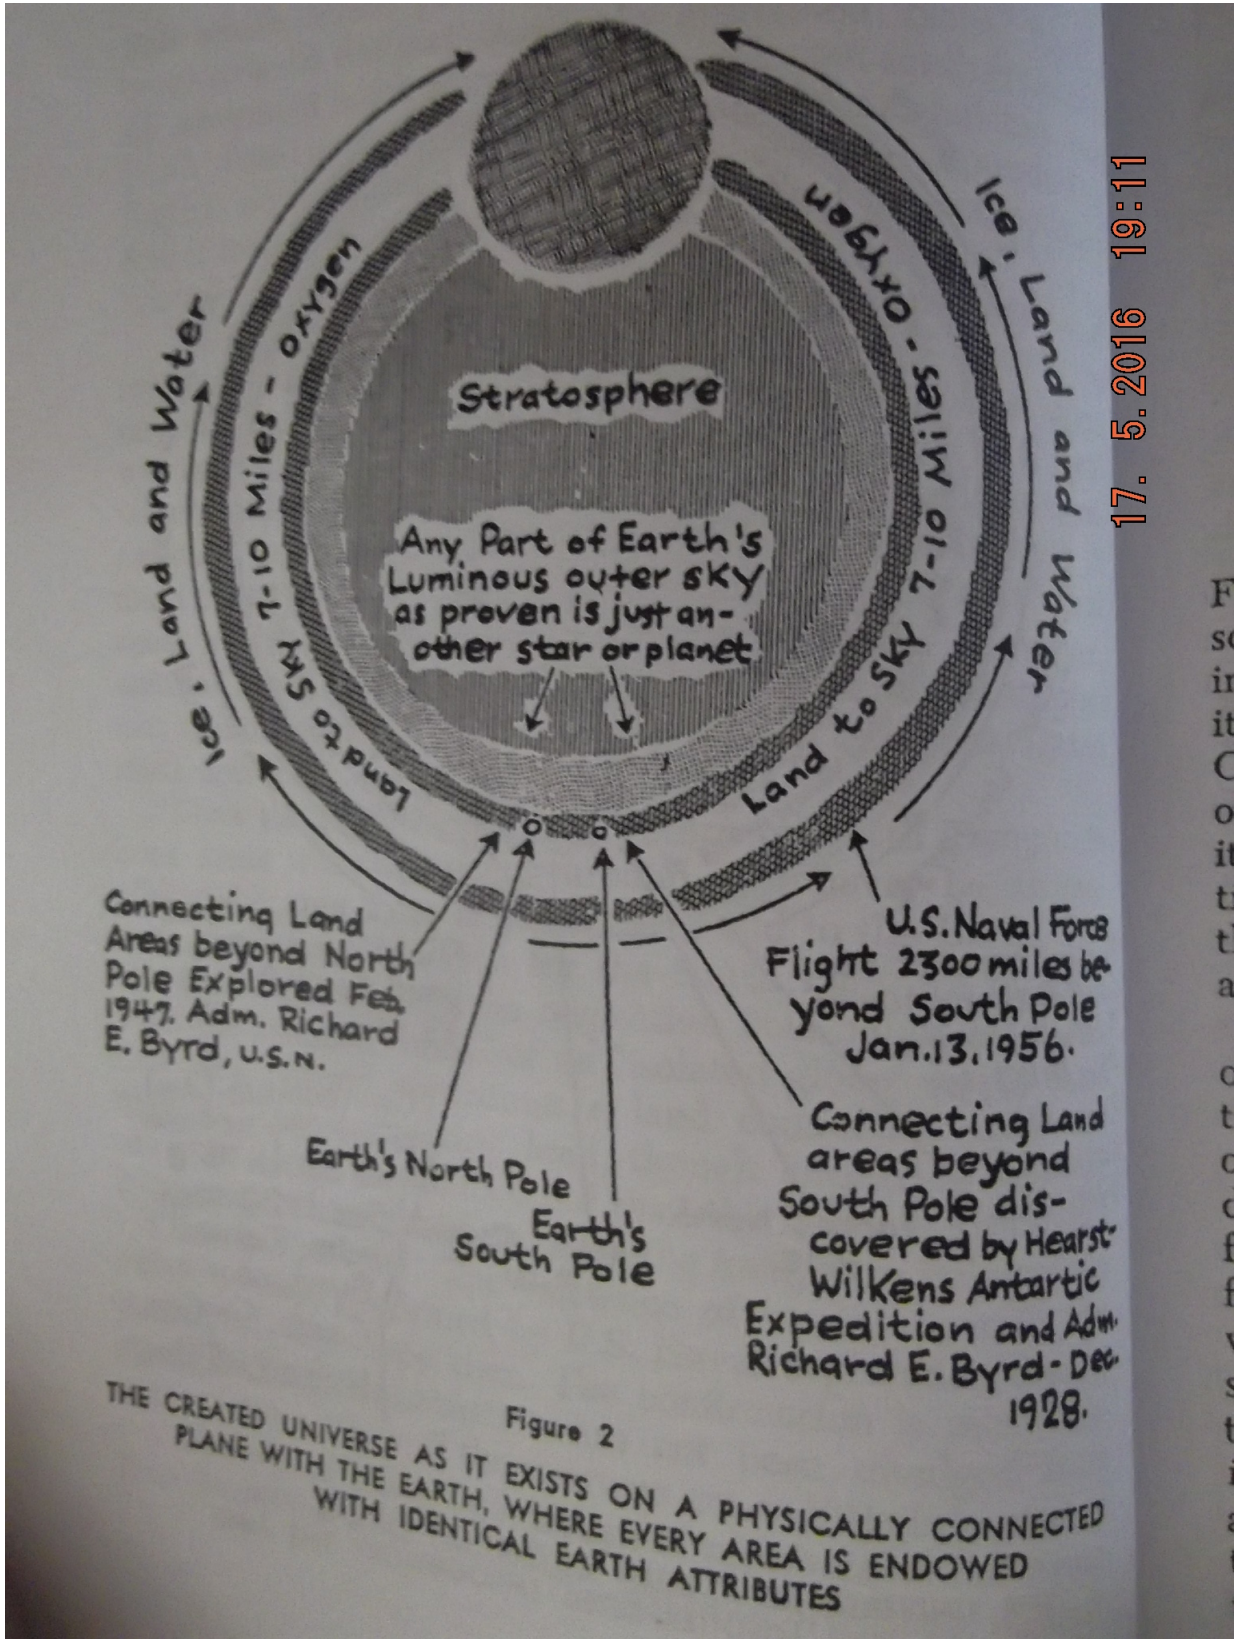 Ice, Land and Water
Land to Sky 7-10 Miles - Oxygen
Land to Sky 7-10 Miles - Oxygen
Ice, Land and Water
17. 5.2016 19:11
Stratosphere
Any Part of Earth's
Luminous outer sky
as proven is just an-
other star or planet
Connecting Land
Areas beyond North
Pole Explored Feb.
1947. Adm. Richard
E. Byrd, U.S.N.
U.S. Naval Force
Flight 2300 miles be-
yond South Pole
Jan.13,1956.
Earth's North Pole
Earth's
South Pole
Connecting Land
areas beyond
South Pole dis-
covered by Hearst-
Wilkens Antartic
Expedition and Adm.
Richard E. Byrd-Dec.
1928.
Figure 2
THE CREATED UNIVERSE AS IT EXISTS ON A PHYSICALLY CONNECTED
PLANE WITH THE EARTH, WHERE EVERY AREA IS ENDOWED
WITH IDENTICAL EARTH ATTRIBUTES